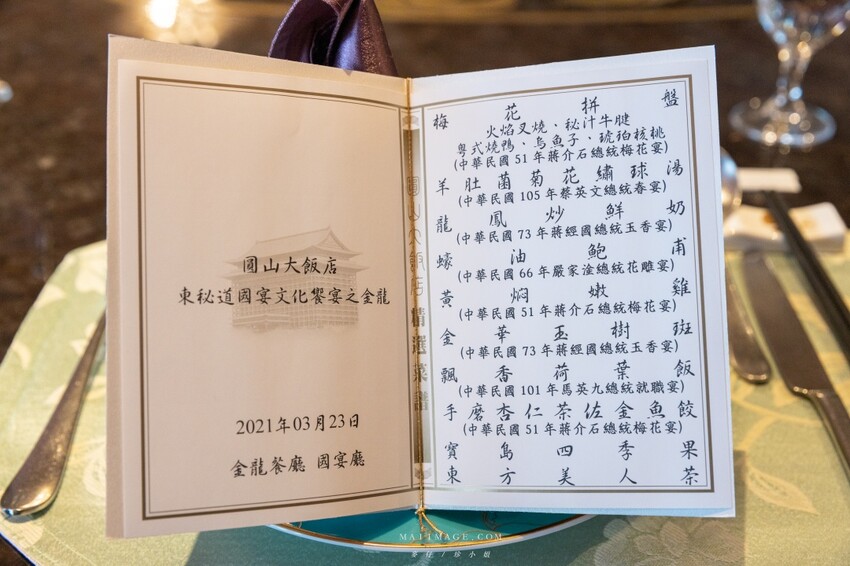 圓山大飯店
東秘道國宴文化饗宴之金龍
2021年03月23日
金龍餐廳 國宴廳
圓山大飯店精選菜譜
梅花拼盤
火焰叉燒、秘汁牛腱
粵式燒鴨、烏魚子、琥珀核桃
(中華民國51年蔣介石總統梅花宴)
羊肚菌菊花繡球湯
(中華民國105年蔡英文總統春宴)
龍鳳炒鮮奶
(中華民國73年蔣經國總統玉香宴)
蠔油鮑甫
(中華民國66年嚴家淦總統花雕宴)
黃焗嫩雞
(中華民國51年蔣介石總統梅花宴)
金華玉樹斑
(中華民國73年蔣經國總統玉香宴)
飄香荷葉飯
(中華民國101年馬英九總統就職宴)
手磨杏仁茶佐金魚餃
(中華民國51年蔣介石總統梅花宴)
寶島四季果
東方美人茶
MAIIMAGE.COM
麥仔/珍小姐